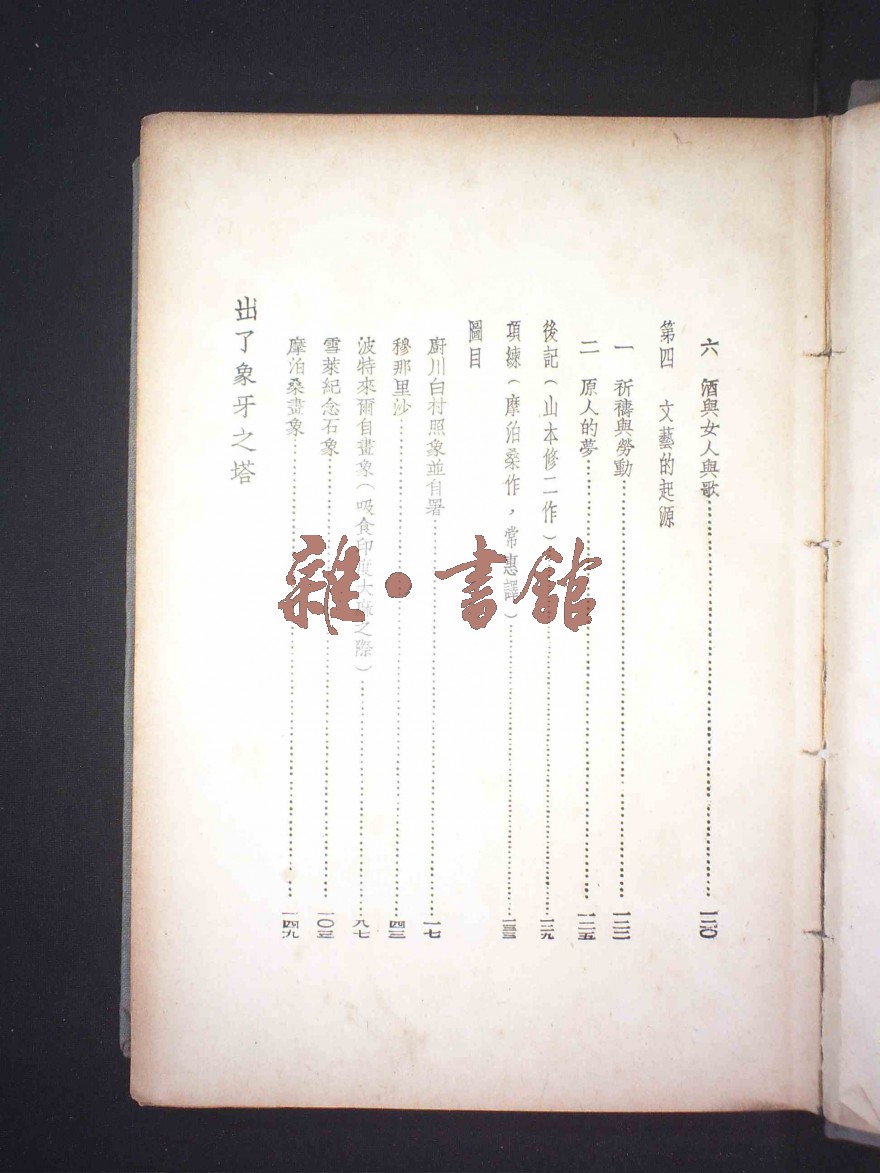 六　酒與女人與歌……一二〇
第四　文藝的起源
一　祈禱與勞動……一二二
二　原人的夢……一二五
後記（山本修二作）……一二九
項鍊（摩泊桑作，常惠譯）……一三三
圖目
廚川白村照象並自署……一七
穆那里沙……四三
波特來爾自畫象（吸食印度大麻之際）……八七
雪萊紀念石象……一〇三
摩泊桑畫象……一四九
出了象牙之塔
雜•書館